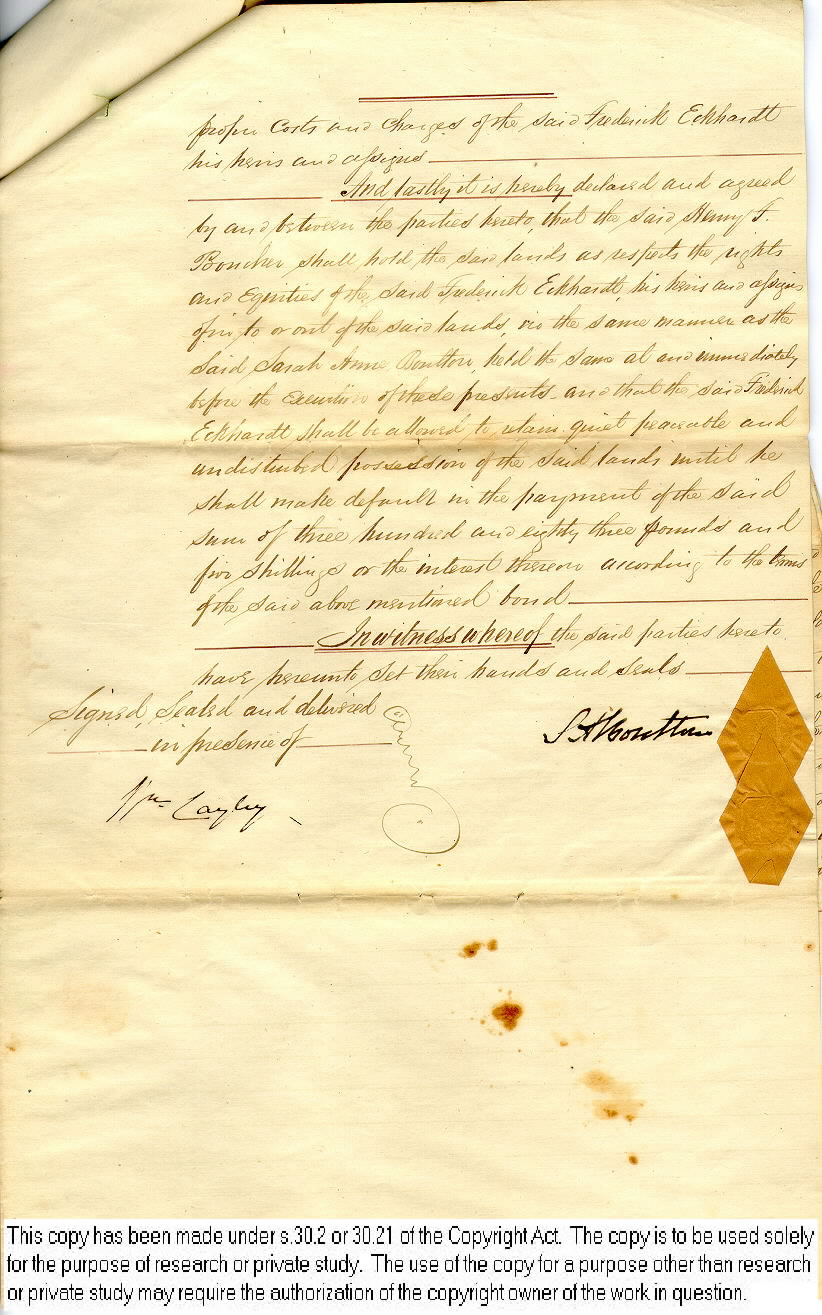 proper Costs and Charges of the said Frederick Eckhardt
his heirs and assigns
And lastly it is hereby declared and agreed
by and between the parties hereto, that the said Henry F.
Boucher shall hold the said lands as respects the rights
and Equities of the said Frederick Eckhardt, his heirs and assigns
of in, to or out of the said lands, in the same manner as the
Said Sarah Anne Boulton, held the same at and immediately
before the Execution of these presents and that the said Frederick
Eckhardt shall be allowed to retain quiet peaceable and
undisturbed possession of the said lands until he
shall make default in the payment of the said
sum of three hundred and eighty three pounds and
five shillings or the interest thereon according to the terms
of the said above mentioned bond
In witness whereof the said parties hereto
have hereunto set their hands and seals
Signed, Sealed and delivered
in presence of
S A Boulton
Wm Cayley
This copy has been made under s.30.2 or 30.21 of the Copyright Act. The copy is to be used solely
for the purpose of research or private study. The use of the copy for a purpose other than research
or private study may require the authorization of the copyright owner of the work in question.